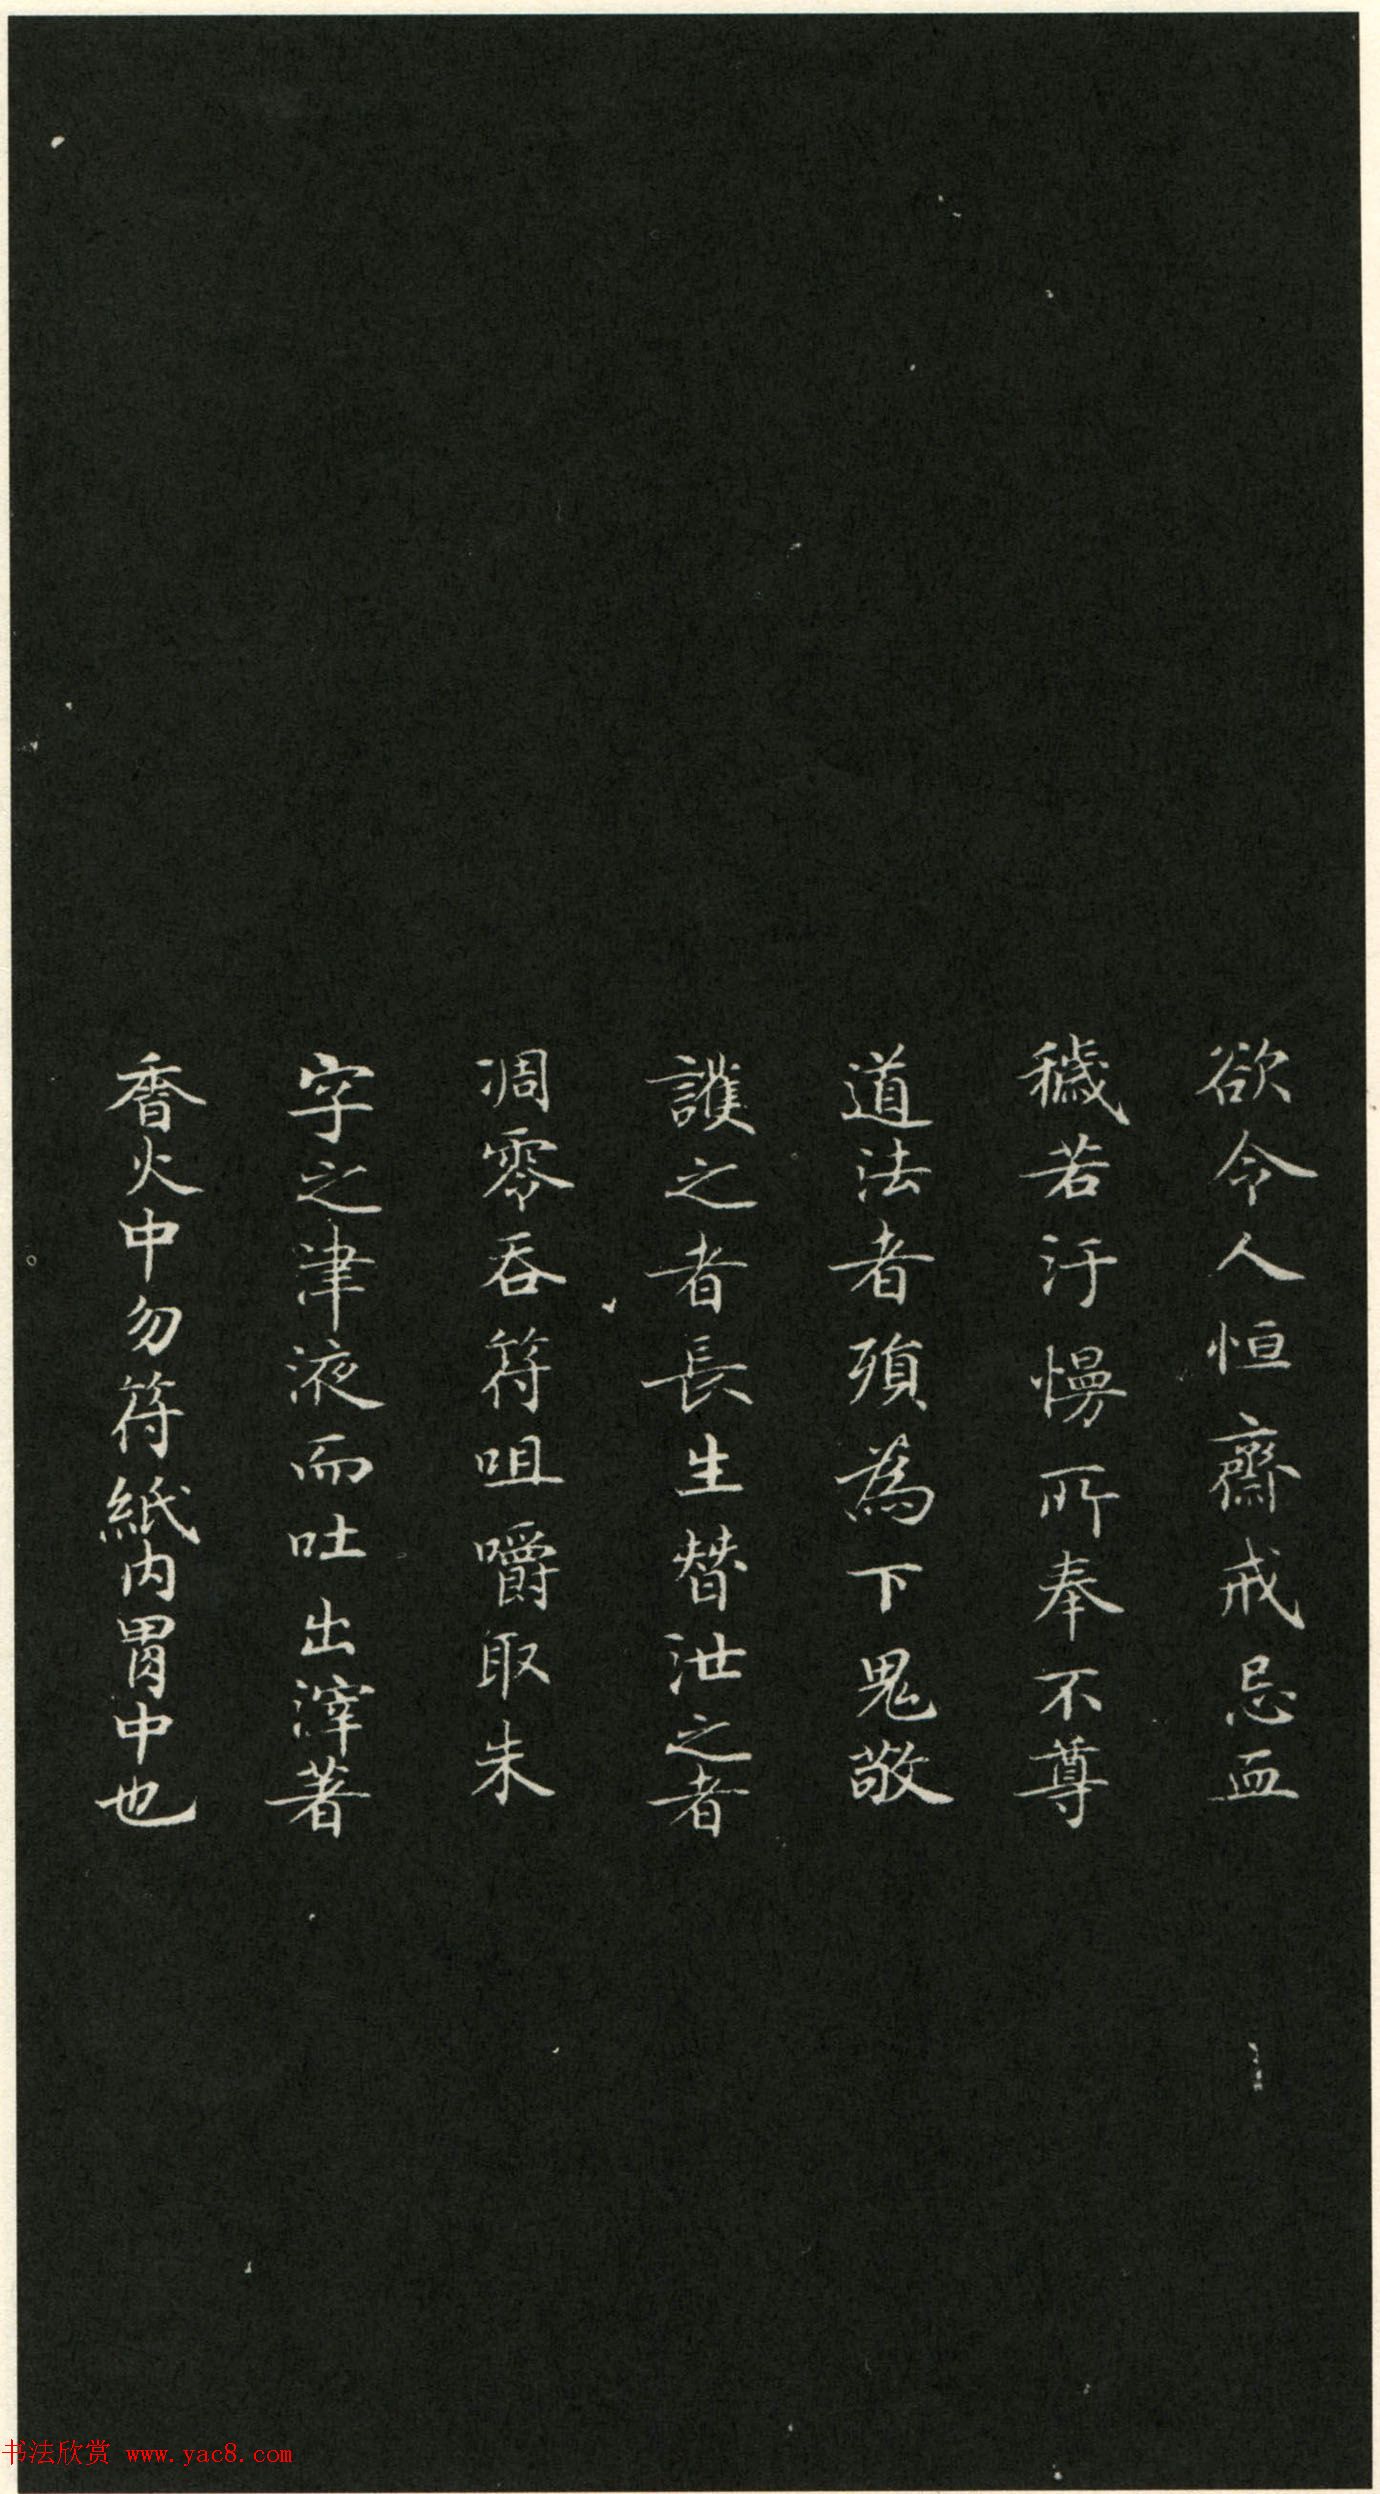 欲令人恒齋戒忌血
穢若汙慢所奉不尊
道法者殞為下鬼敬
護之者長生替泄之者
凋零吞符咀嚼取朱
字之津液而吐出滓著
香火中勿符紙内胃中也
书法欣赏 www.yac8.com